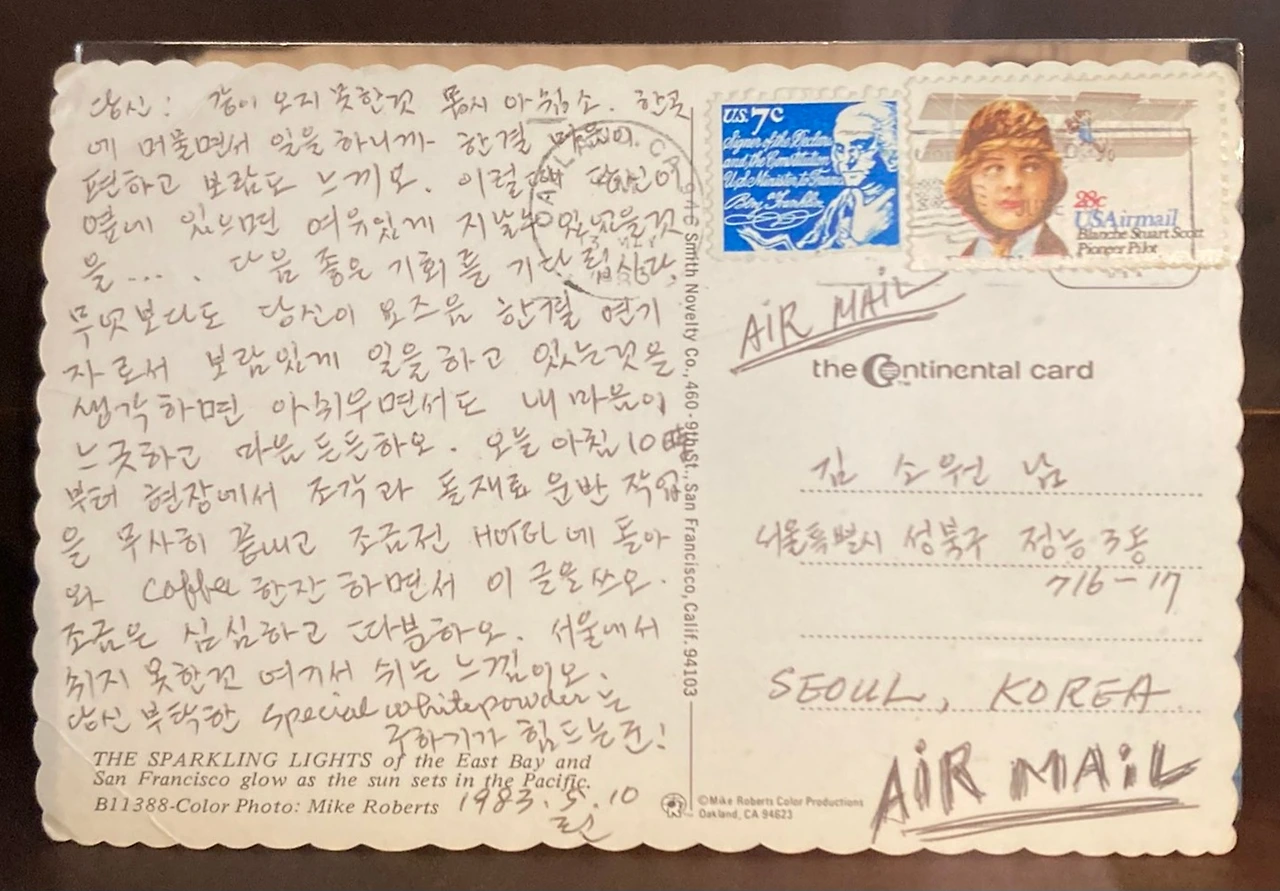 당신: 같이 오지 못한것 몹시 아쉽소. 한곳
에 머물면서 일을 하니까 한결 마음이
편하고 보람도 느끼오. 이럴때 당신이
옆에 있으면 여유있게 지날수 있었을것
을.... 다음 좋은 기회를 기다립시다.
무엇보다도 당신이 요즈음 한결 연기
자로서 보람있게 일을하고 있는것을
생각하면 아쉬우면서도 내마음이
느긋하고 마음 든든하오. 오늘 아침 10時
부터 현장에서 조각과 돌재료 운반 작업
을 무사히 끝내고 조금전 HOTEL에 돌아
와 Coffee 한잔 하면서 이 글을 쓰오.
조금은 심심하고 따분하오. 서울에서
쉬지 못한건 여기서 쉬는 느낌이오.
당신 부탁한 Special white powder는
구하기가 힘드는군!
THE SPARKLING LIGHTS of the East Bay and
San Francisco glow as the sun sets in the Pacific.
B11388-Color Photo: Mike Roberts
1983. 5. 10
Smith Novelty Co., 460 - 9th St., San Francisco, Calif. 94103
U.S. 7c
Signer of the Declaration
and the Constitution
U.S. Minister to France
Benj. Franklin
28c
USAirmail
Blanche Stuart Scott
Pioneer Pilot
AIR MAIL
the Continental card
TM
김 소원 님
서울특별시 성북구 정능3동
716-17
SEOUL, KOREA
AIR MAIL
©Mike Roberts Color Productions
Oakland, CA 94623